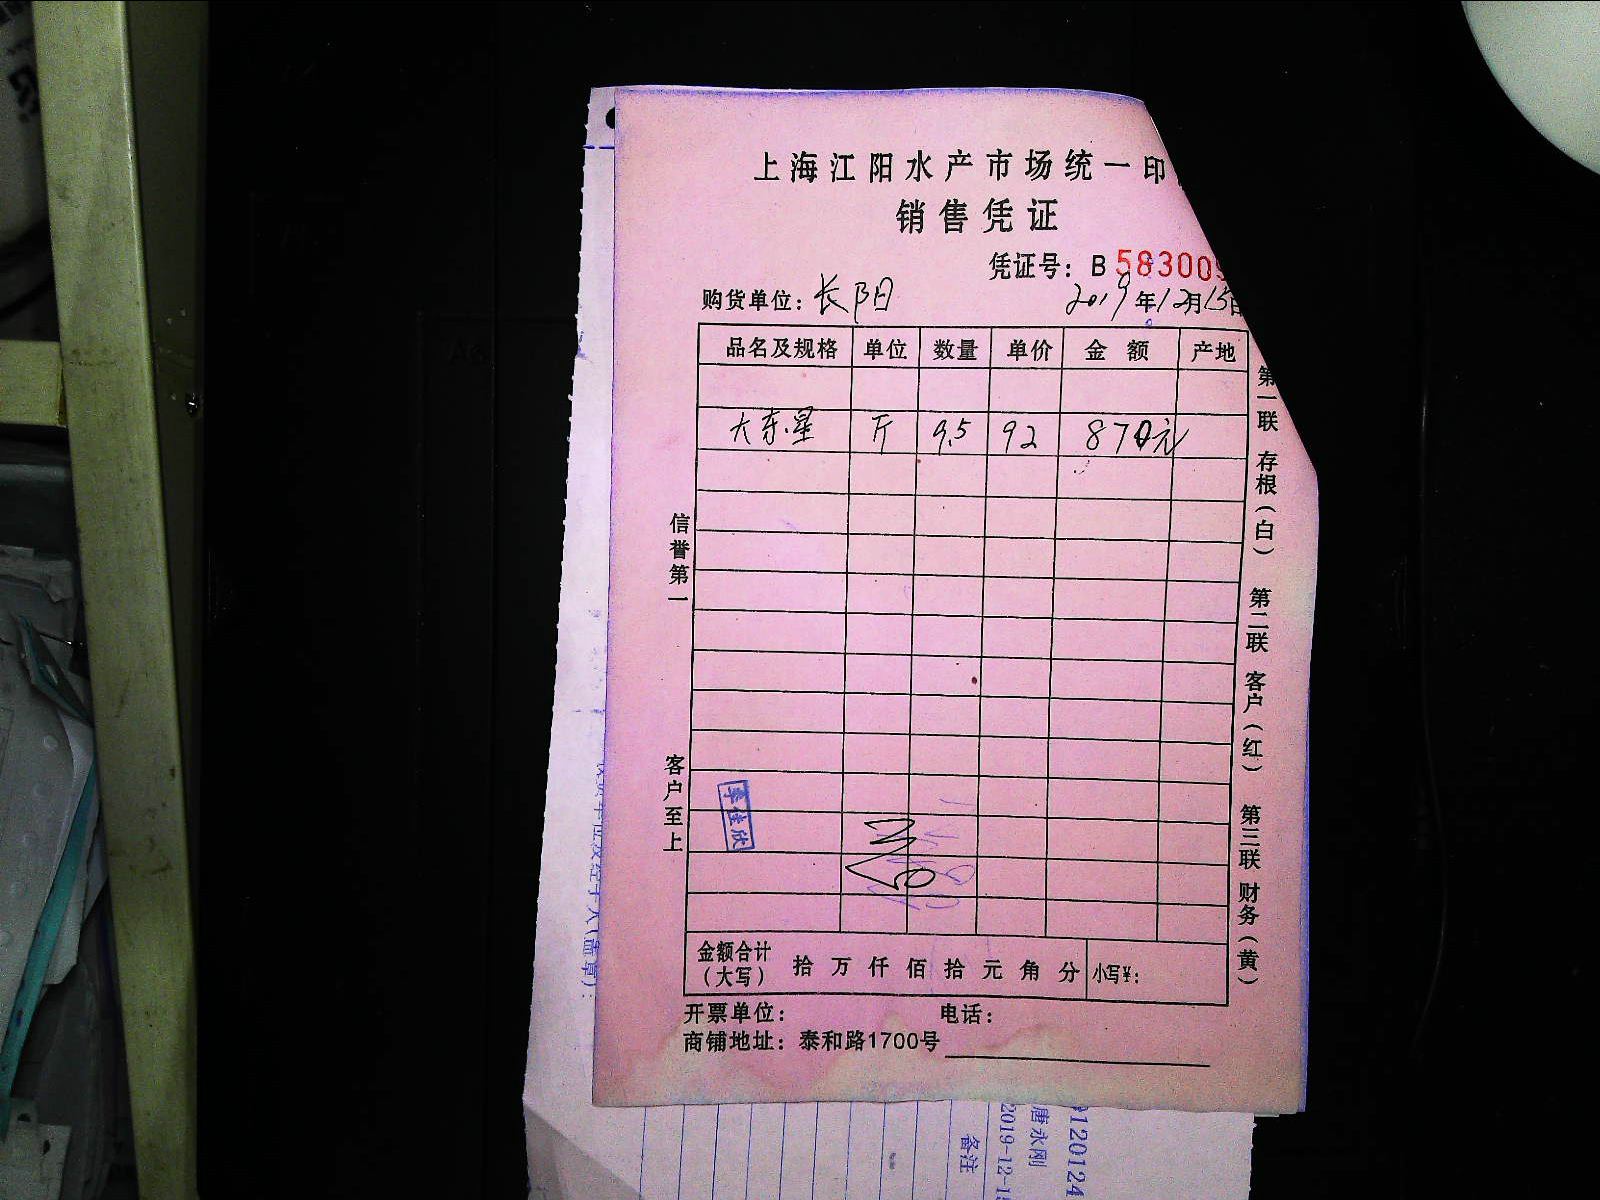 上海江阳水产市场统一印
销售凭证
凭证号：B 583009
购货单位：长阳 2019年12月15日
品名及规格 单位 数量 单价 金额 产地
大东星 斤 9.5 92 870元
信誉第一
客户至上
第一联 存根（白） 第二联 客户（红） 第三联 财务（黄）
李佳欣
金额合计（大写） 拾 万 仟 佰 拾 元 角 分 小写¥：
开票单位： 电话：
商铺地址：泰和路1700号
单位及经手人（盖章）：
备注
2019-12-15
唐永刚
120124